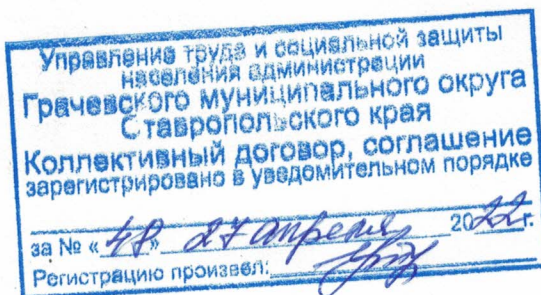 Управление труда и социальной защиты
населения администрации
Грачевского муниципального округа
Ставропольского края
Коллективный договор, соглашение
зарегистрировано в уведомительном порядке
за № «48» 27 апреля 2022г.
Регистрацию произвел: